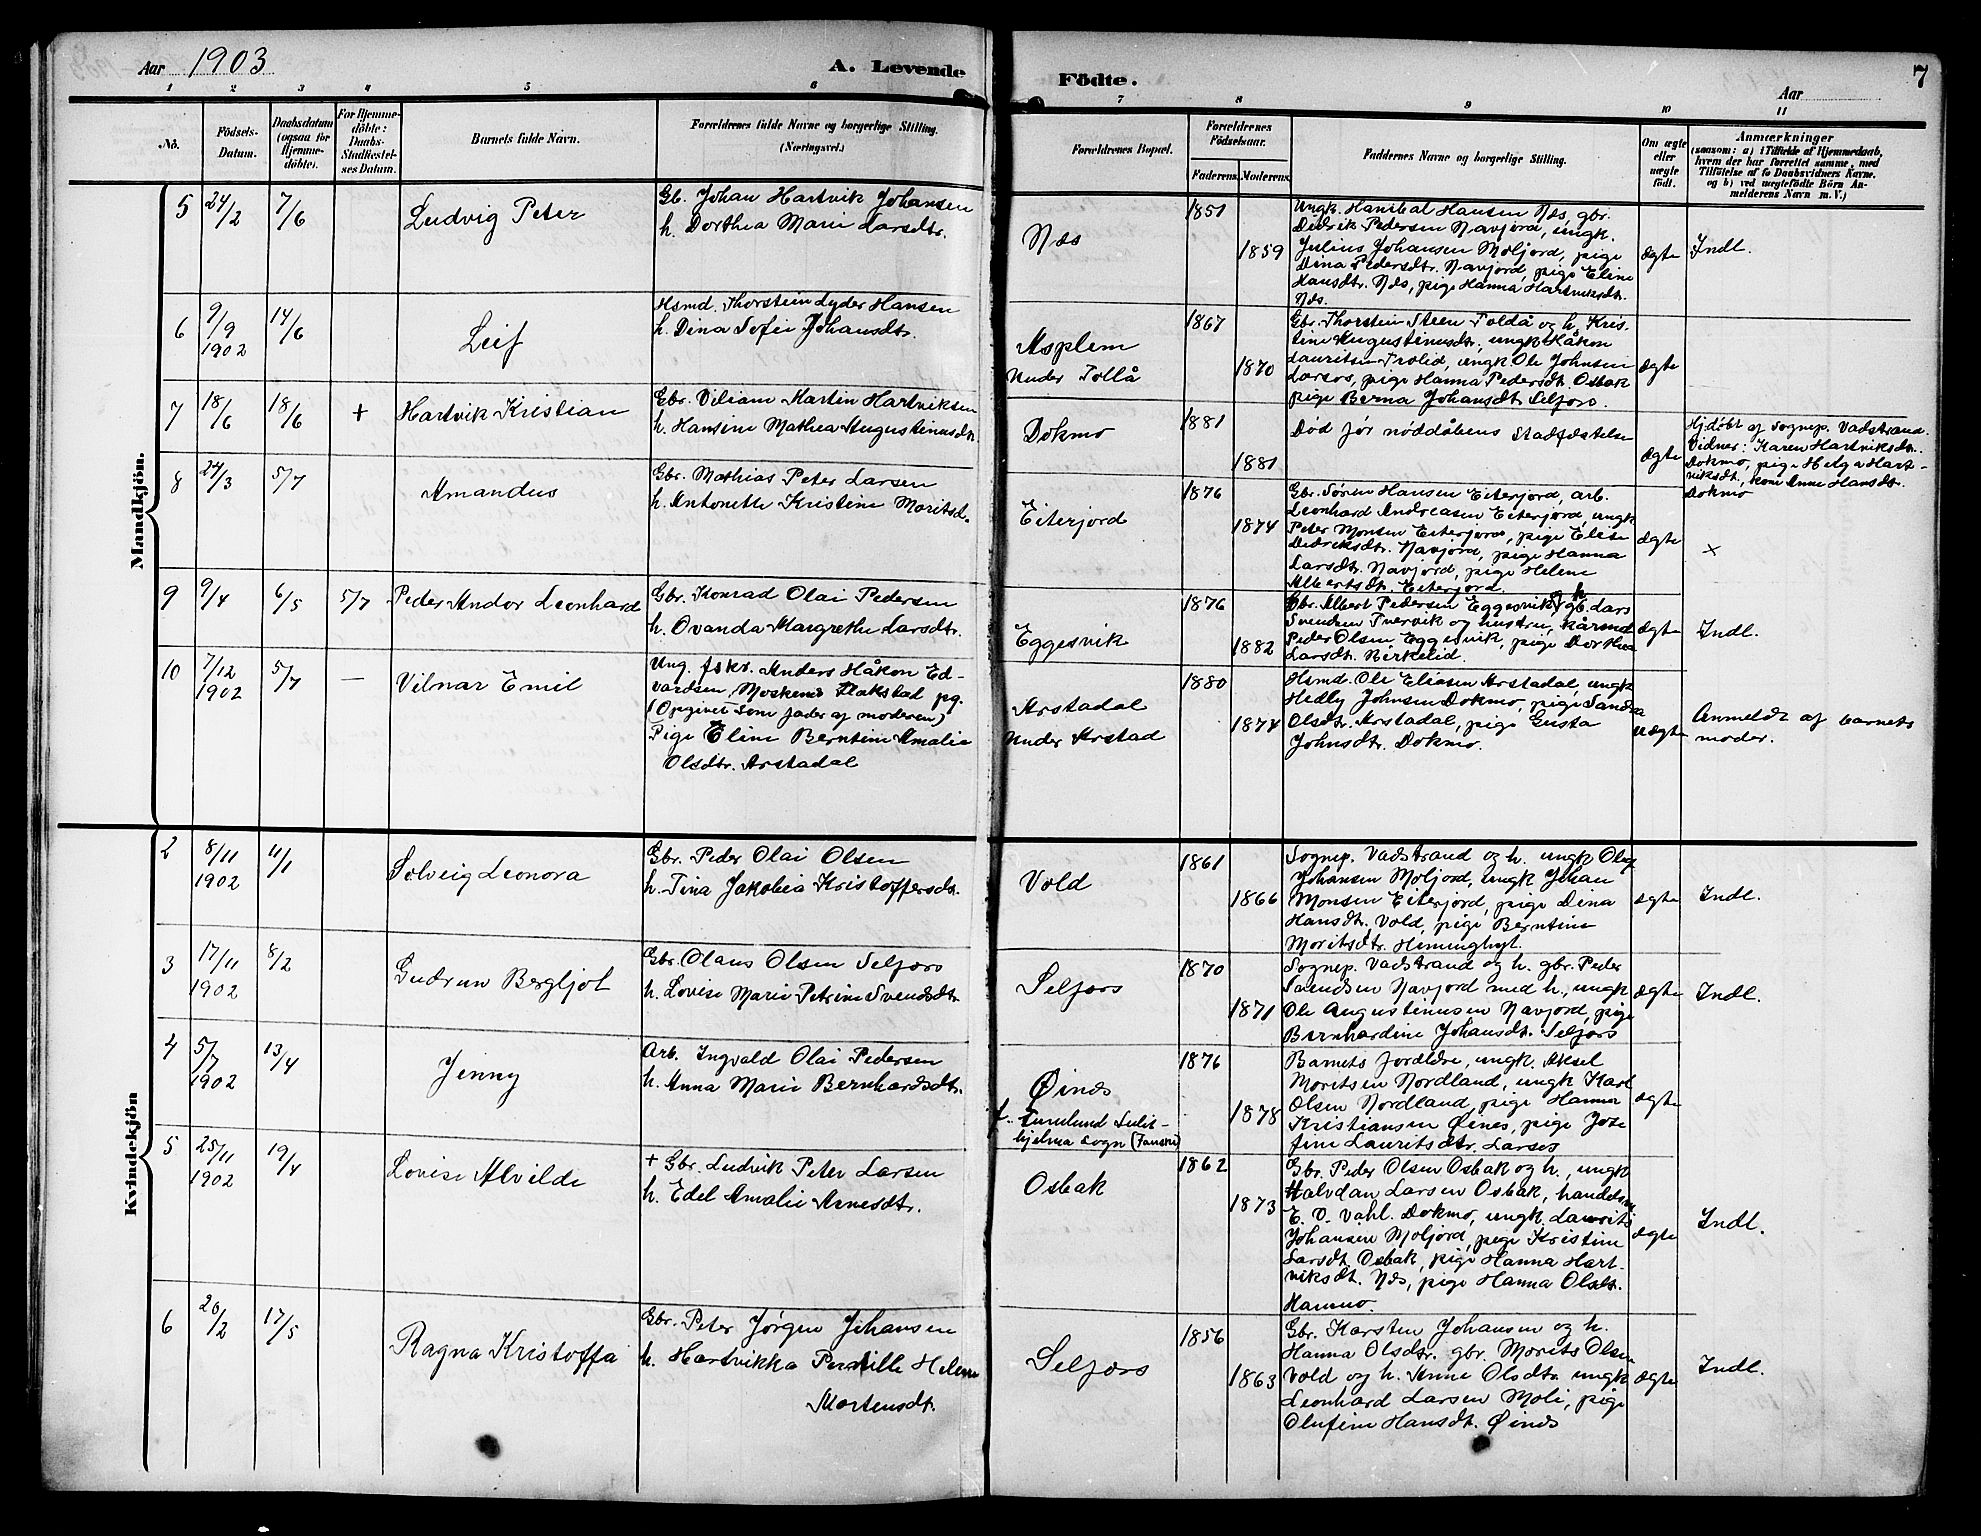 Aar 1903
A. Levende Födte.
7
Aar
1 2 3 4 5 6 7 8 9 10 11
No.
Födsels-
Datum.
Daabsdatum
(ogsaa for
Hjemme-
döbte).
For Hjemme-
döbte:
Daabs-
Stadfæstel-
ses Datum.
Barnets fulde Navn.
Forældrenes fulde Navne og borgerlige Stilling.
(Næringsvei.)
Forældrenes Bopæl.
Forældrenes
Födselsaar.
Faderens. Moderens.
Faddernes Navne og borgerlige Stilling.
Om ægte
eller
uægte
födt.
Anmærkninger
(saasom: a) i Tilfælde af Hjemmedaab,
hvem der har forrettet samme, med
Tilföielse af to Daabsvidners Navne.
og b) ved uægtefödte Börn An-
melderens Navn m. V.)
Mandkjön.
5
24/2
7/6
Ludvig Peter
Gb. Johan Hartvik Johansen
h. Dorthea Marie Larsdtr.
Næs
1851
1859
Ungk. Hanibal Hansen Næs, gbr.
Didrik Pedersen Navjord, ungk.
Julius Johansen Moljord, pige
Dina Pedersdtr. Navjord, pige Eline
Hansdtr. Næs, pige Hanna Hartviksdtr.
Næs.
ægte
Indl.
6
9/9
1902
14/6
Leif
Hsmd. Thorstein Lyder Hansen
h. Dina Sofie Johansdtr.
Asplem
under Tollå
1867
1870
Gbr. Thorstein Steen Toldå og h. Kris-
tine Augustinusdtr, ungk Håkon
Lauritsen Trolid, ungk Ole Johnsen
Larsos, pige Hanna Pedersdt. Osbak
pige Berna Johansdtr Selfors.
ægte
7
18/6
18/6
+
Hartvik Kristian
Gbr. Viliam Martin Hartviksen
h. Hansine Mathea Augustinusdt.
Dokmo
1881
1881
Død før nøddåbens Stadfæstelse
ægte
Hj.døbt af Sognep. Vadstrand.
Vidner: Karen Hartviksdtr.
Dokmo, pige Helga Hart-
viksdt, kone Anne Hansdt.
Dokmo
8
24/3
5/7
Amandus
Gbr. Mathias Peter Larsen
h. Antonette Kristine Moritsd.
Eiterjord
1876
1874
Gbr. Søren Hansen Eiterjord, arb.
Leonhard Andreasen Eiterjord, ungk
Peter Monsen Eiterjord, pige Elise
Didriksdtr. Navjord, pige Hanna
Larsdtr. Navjord, pige Helene
Albertsdtr. Eiterjord.
ægte
x
9
9/4
6/5
5/7
Peder Andor Leonhard
Gbr. Konrad Olai Pedersen
h. Ovanda Margrethe Larsdtr.
Eggesvik
1876
1882
Gbr. Albert Pedersen Eggesvik og h gb. Lars
Svendsen Tvervik og hustru, kårmd
Peder Olsen Eggesvik, pige Dorthea
Larsdtr. Birkelid.
ægte
Indl.
10
7/12
1902
5/7
—
Vilnar Emil
Ung. fskr. Anders Håkon Ed-
vardsen, Moskenes Flakstad pg.
(Opgivet som fader af moderen)
Pige Eline Berntine Amalie
Olsdtr. Arstadal
Arstadal
under Arstad
1880
1874
Hsmd. Ole Eliasen Arstadal, ungk
Hedly Johnsen Dokmo, pige Sandra
Olsdtr. Arstadal, pige Gusta
Johnsdtr. Dokmo.
uægte
Anmeldt af barnets
moder.
Kvindekjön
2
8/11
1902
11/1
Solveig Leonora
Gbr. Peder Olai Olsen
h. Tina Jakobia Kristoffersdtr.
Vold
1861
1866
Sognep. Vadstrand og h. ungk Oluf
Johansen Moljord, ungk Johan
Monsen Eiterjord, pige Dina
Hansdtr. Vold, pige Berntine
Moritsdtr. Heminghyt.
ægte
Indl.
3
17/11
1902
8/2
Gudrun Bergljot
Gbr. Olaus Olsen Selfors
h. Lovise Marie Petrine Svendsdtr
Selfors
1870
1871
Sognep. Vadstrand og h. gbr. Peder
Svendsen Navjord med h., ungk
Ole Augustinusen Navjord, pige
Bernhardine Johansdt. Selfors
ægte
Indl.
4
5/7
1902
13/4
Jenny
Arb. Ingvald Olai Pedersen
h. Anna Marie Bernhardsdtr.
Øines
f. Furulund Sulit-
hjelma sogn (Fauske)
1876
1878
Barnets forældre, ungk. Aksel
Moritsen Nordland, ungk Karl
Olsen Nordland, pige Hanna
Kristiansen Øines, pige Jose
fine Lauritsdtr. Larsos
ægte
5
25/11
1902
19/4
Lovise Alvilde
+ Gbr. Ludvik Peter Larsen
h. Edel Amalie Arnesdtr.
Osbak
1862
1873
Gbr. Peder Olsen Osbak og h., ungk
Halvdan Larsen Osbak, handelsm
E. V. Vahl. Dokmo, ungk. Laurits
Johansen Moljord, pige Kristine
Larsdt. Osbak, pige Hanna Hart-
viksdt. Næs, pige Hanna Olsdt.
Hammo.
ægte
Indl.
6
20/2
17/5
Ragna Kristoffa
Gbr. Peter Jørgen Johansen
h. Hartvikka Pernille Helene
Mortensdt.
Selfors
1856
1863
Gbr. Karsten Johansen og h.
Hanna Olsdtr. gbr. Morits Olsen
Vold og h. Anne Olsdtr. ungk
Leonhard Larsen Moli, pige
Olufine Hansdt. Øines
ægte
Indl.